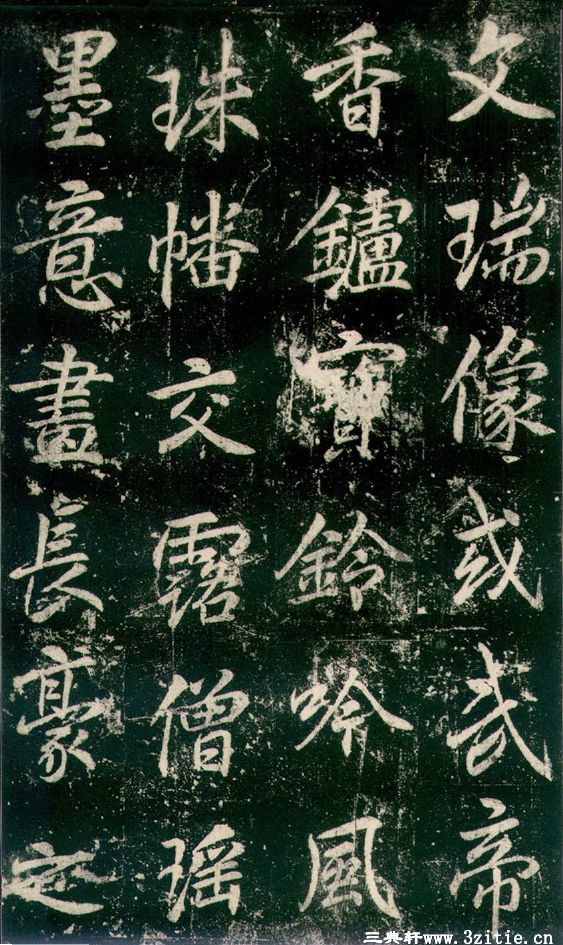 文瑞像或武帝
香鑪寶鈴吟風
珠幡交露僧瑶
墨意畫長豪
三典轩www.3zitie.cn